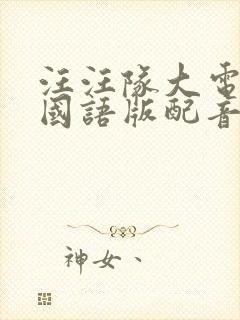 汪汪隊大電
國語版配音
神女、